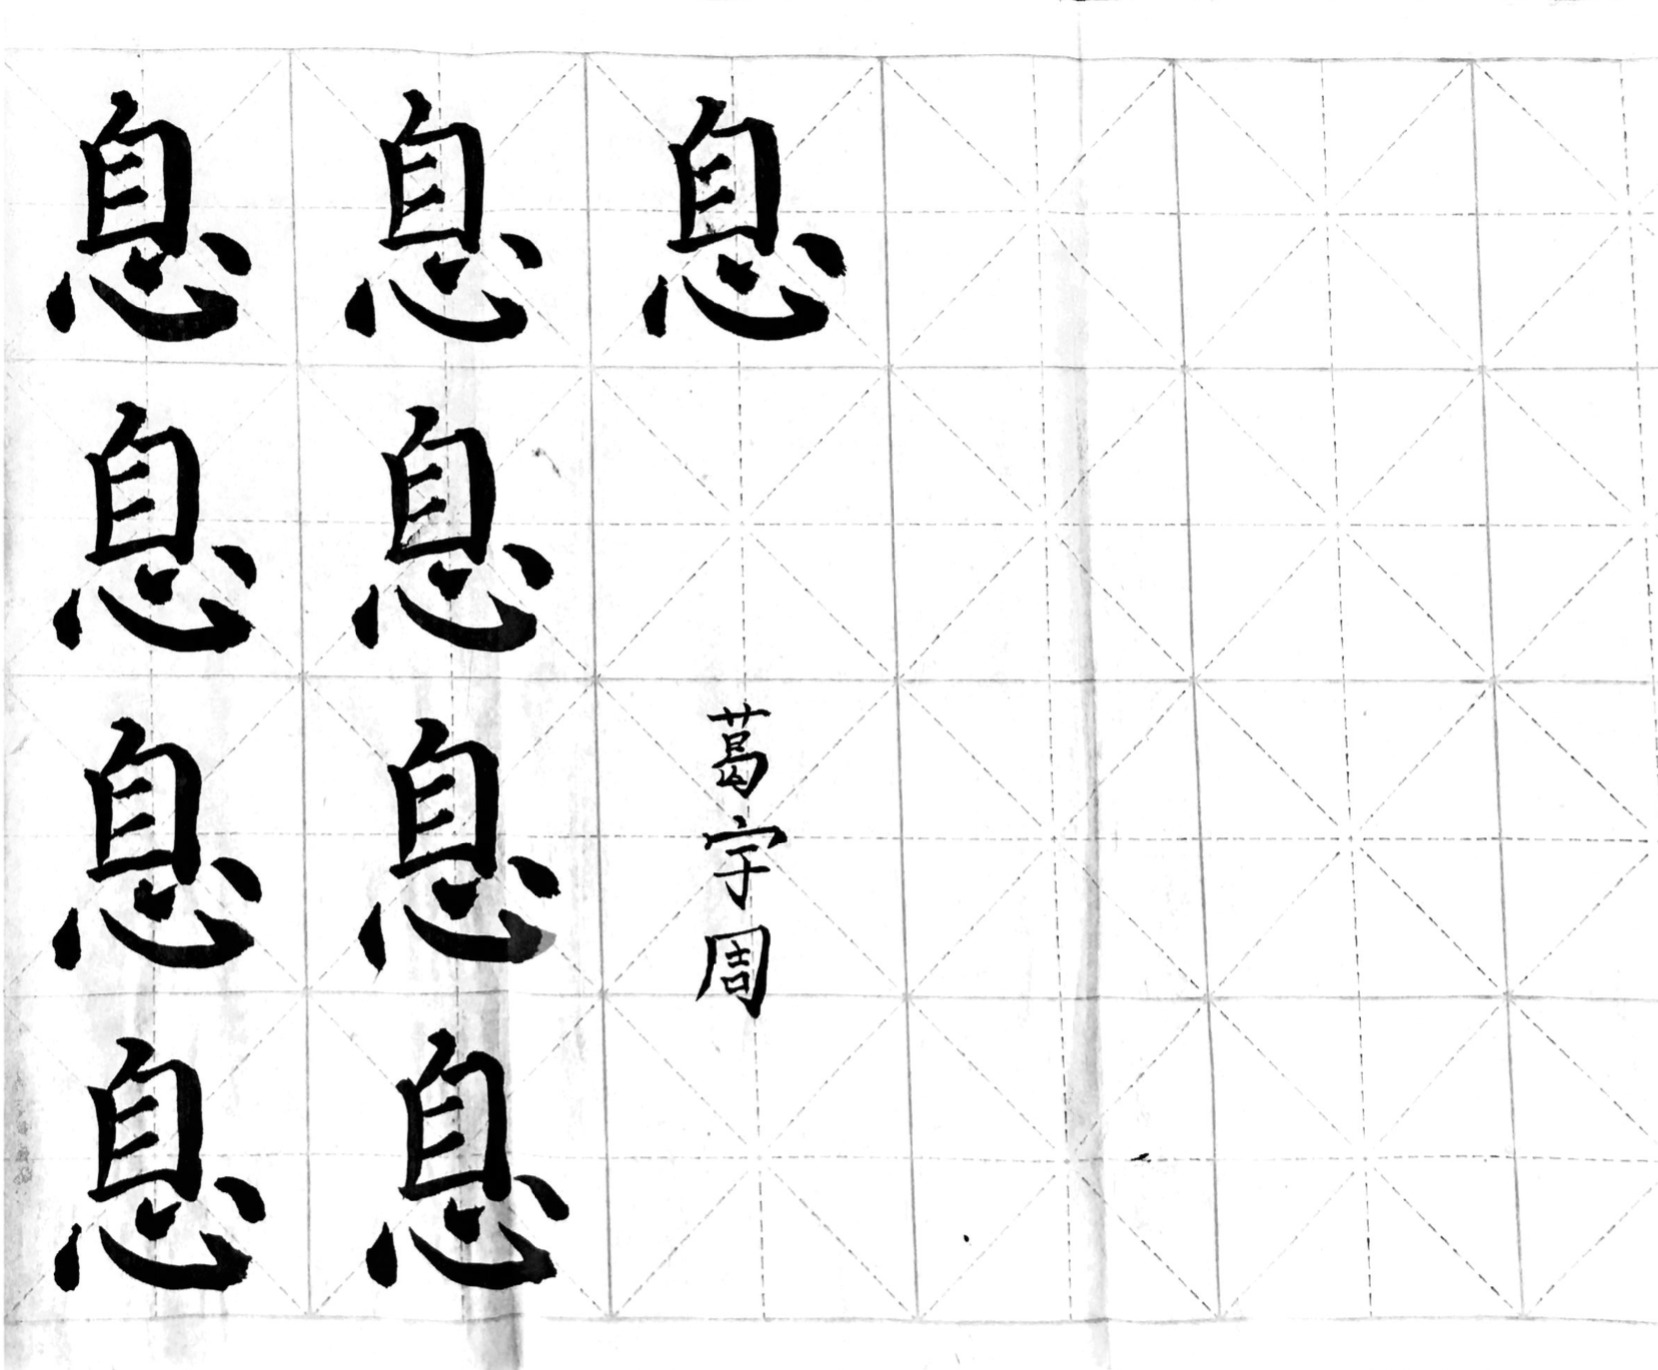 息息息息
息息息息
息
葛宇周